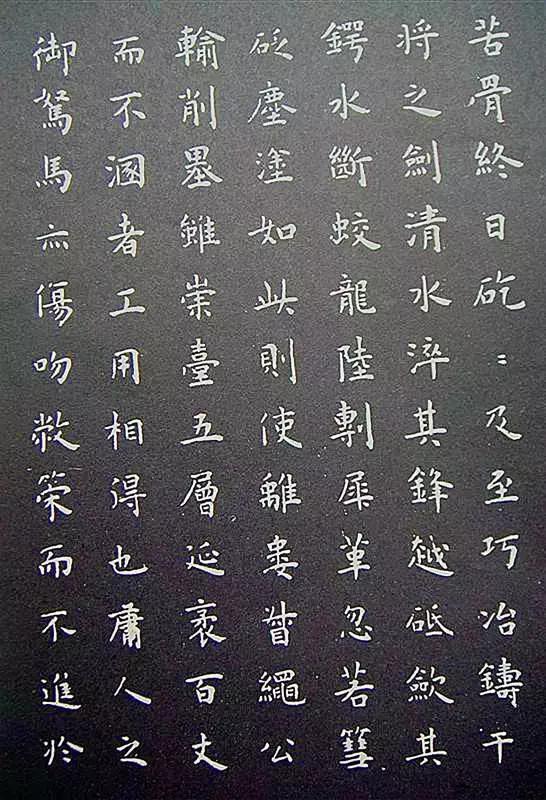 苦骨終日矻〻及至巧冶鑄干
将之劍清水淬其鋒越砥歛其
鍔水斷蛟龍陸剸犀革忽若篲
砭塵塗如此則使離婁督繩公
輸削墨雖崇臺五層延袤百丈
而不溷者工用相得也庸人之
御駑馬亦傷吻敝策而不進於